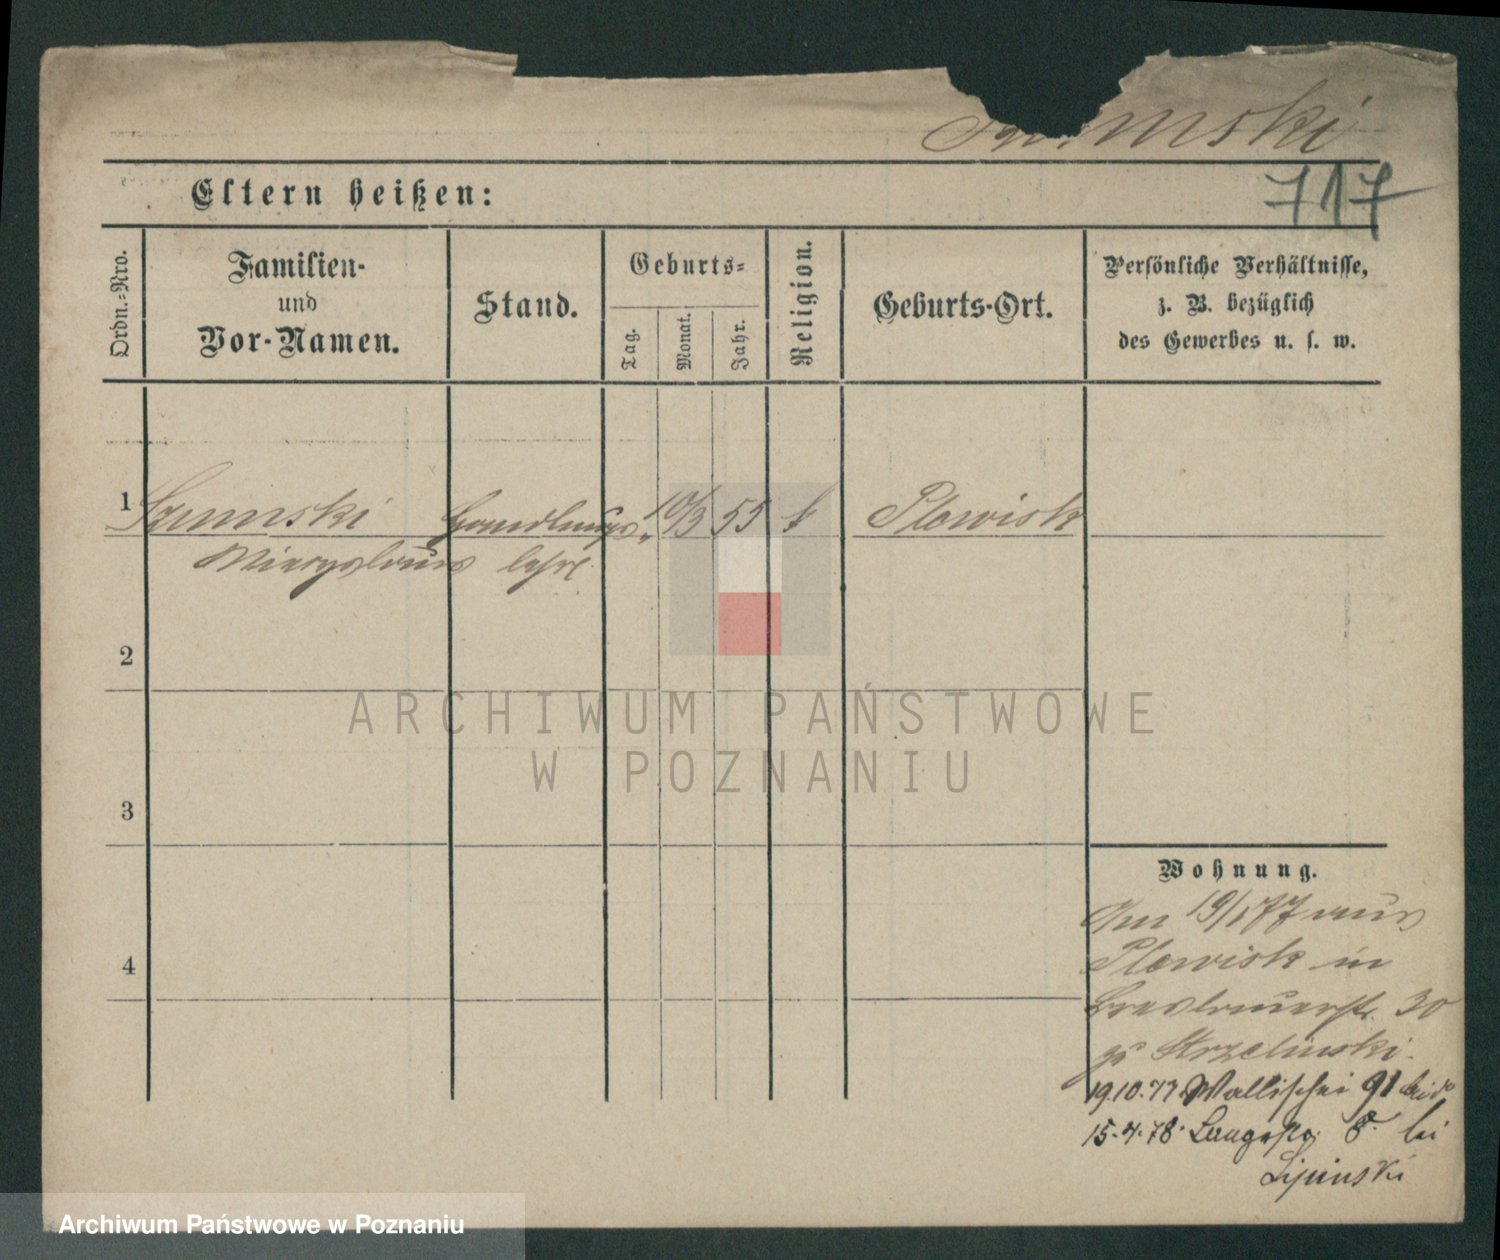 Szumski
717
Eltern heißen:
Ordn.-Nro.
Familien-
und
Vor-Namen.
Stand.
Geburts-
Tag.
Monat.
Jahr.
Religion.
Geburts-Ort.
Persönliche Verhältnisse,
z. B. bezüglich
des Gewerbes u. s. w.
1
Szumski
Handlungs-
10/3
55
k
Plowisk
Mieczyslaus
lehrl.
2
3
4
Wohnung.
Am 19/1 77 aus
Plowisk in
Breslauerstr. 30
zu Strzelinski.
19.10.77 Wallischei 91
15.4.78. Langestr. 8. bei
Lipinski
ARCHIWUM PAŃSTWOWE
W POZNANIU
Archiwum Państwowe w Poznaniu